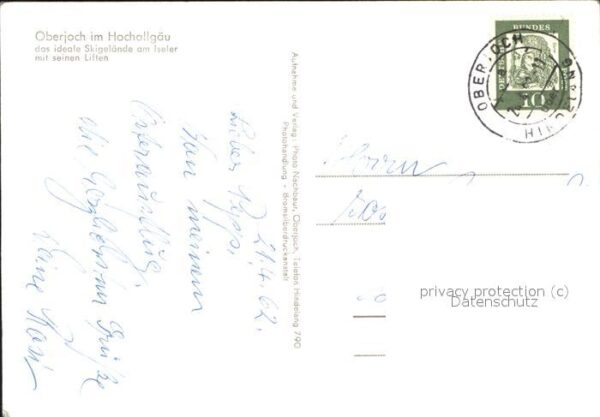 Oberjoch im Hochallgäu
das ideale Skigelände am Iseler
mit seinen Liften
21.4.62.
Lieber Pepp,
Von meinem
Osterausflug
die herzlichsten Grüße
Deine Rosi
Aufnahme und Verlag: Photo Nachbaur, Oberjoch, Telefon Hindelang 790
Photohandlung - Bromsilberdruckanstalt
DEUTSCHE BUNDESPOST
10
OBERJOCH
HINDELANG
Herrn
privacy protection (c)
Datenschutz